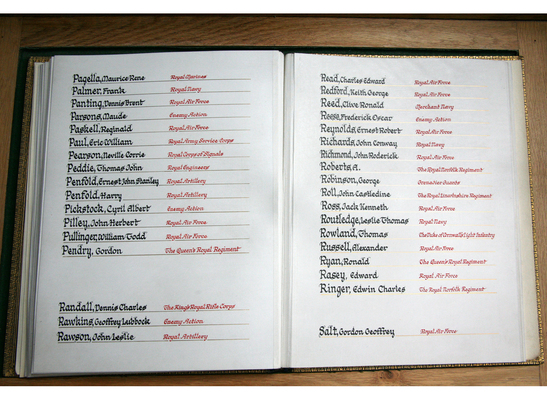 Pagella, Maurice Rene Royal Marines
Palmer, Frank Royal Navy
Panting, Dennis Brent Royal Air Force
Parsons, Maude Enemy Action
Paskell, Reginald Royal Air Force
Paul, Eric William Royal Army Service Corps
Pearson, Neville Corrie Royal Corps of Signals
Peddie, Thomas John Royal Engineers
Penfold, Ernest John Stanley Royal Artillery
Penfold, Harry Royal Artillery
Pickstock, Cyril Albert Enemy Action
Pilley, John Herbert Royal Air Force
Pullinger, William Todd Royal Air Force
Pendry, Gordon The Queen's Royal Regiment
Randall, Dennis Charles The King's Royal Rifle Corps
Rawkins, Geoffrey Lubbock Enemy Action
Rawson, John Leslie Royal Artillery
Read, Charles Edward Royal Air Force
Redford, Keith George Royal Air Force
Reed, Clive Ronald Merchant Navy
Reese, Frederick Oscar Enemy Action
Reynolds, Ernest Robert Royal Air Force
Richards, John Conway Royal Navy
Richmond, John Roderick Royal Air Force
Roberts, A. The Royal Norfolk Regiment
Robinson, George Grenadier Guards
Roll, John Castledine The Royal Lincolnshire Regiment
Ross, Jack Kenneth Royal Air Force
Routledge, Leslie Thomas Royal Navy
Rowland, Thomas The Duke of Cornwall's Light Infantry
Russell, Alexander Royal Air Force
Ryan, Ronald The Queen's Royal Regiment
Rasey, Edward Royal Air Force
Ringer, Edwin Charles The Royal Norfolk Regiment
Salt, Gordon Geoffrey Royal Air Force